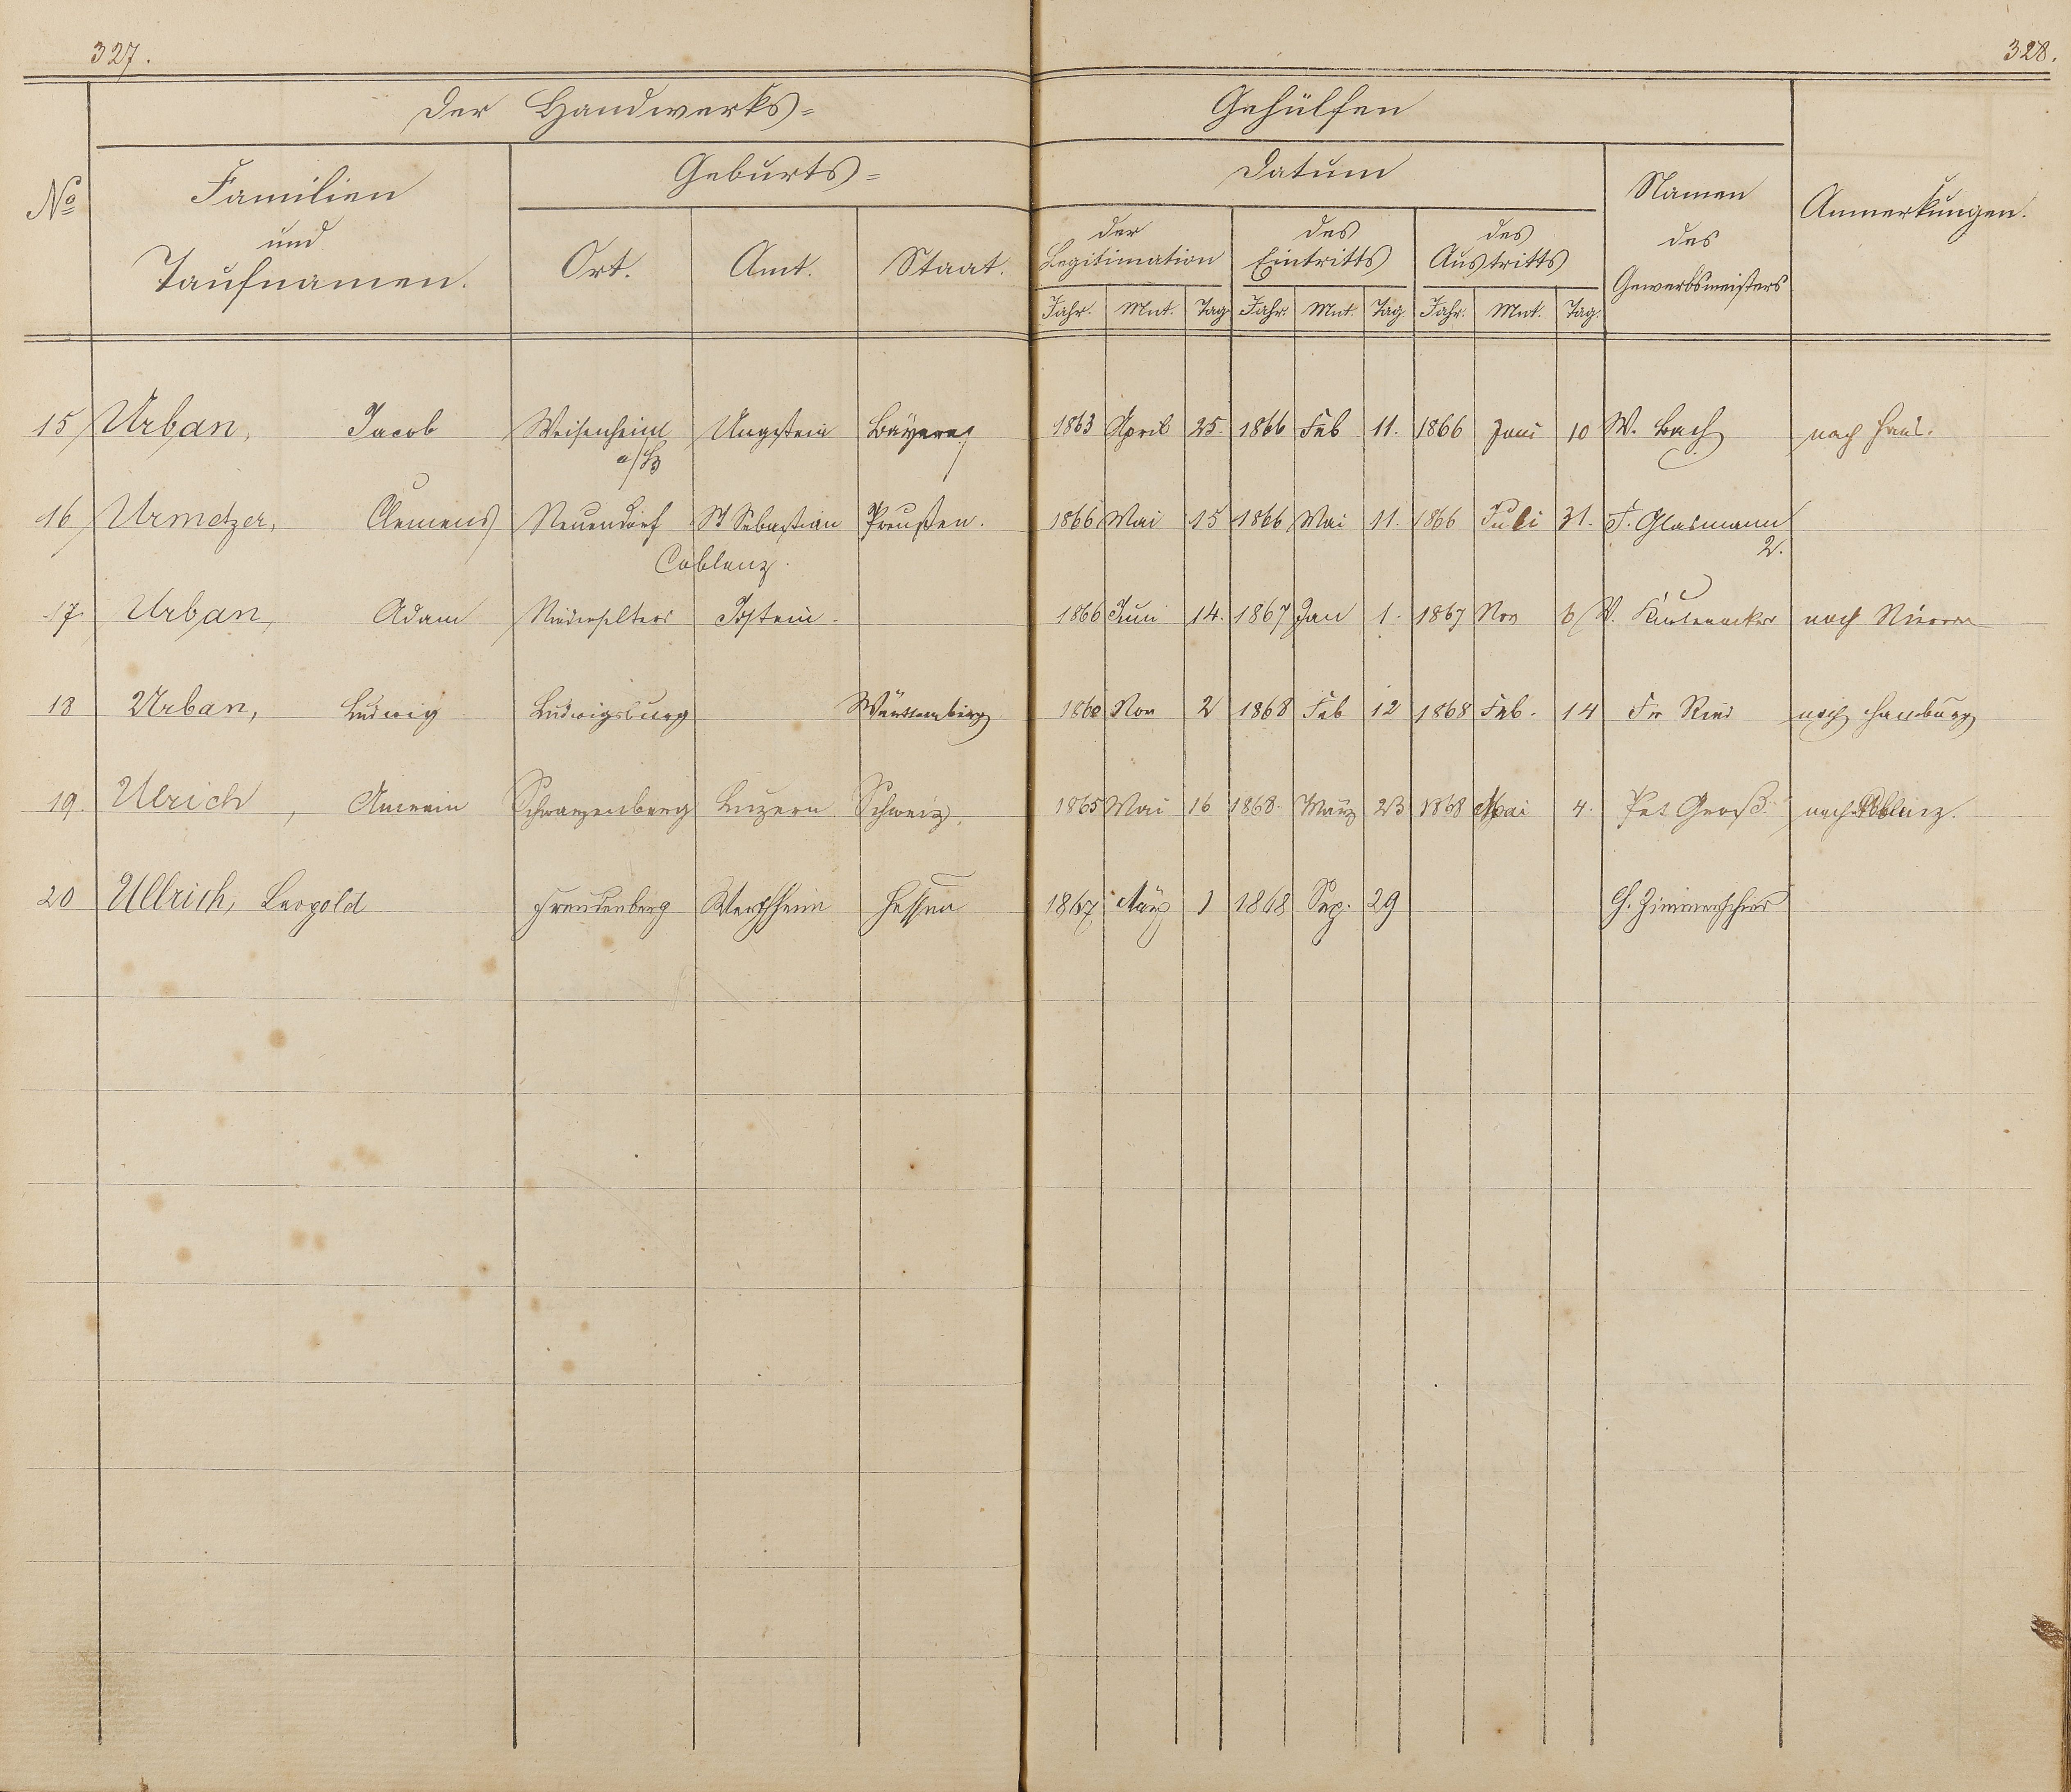 327.
328.
Der Handwerks=
Gehülfen
No
Familien
und
Taufnamen.
Geburts=
Ort.
Amt.
Staat.
Datum
der
Legitimation
des
Eintritts
des
Austritts
Jahr. Mnt. Tag Jahr. Mnt. Tag. Jahr. Mnt. Tag.
Namen
des
Gewerbsmeisters
Anmerkungen.
15 Urban, Jacob Weisenheim Ungstein Bayern 1863 April 25. 1866 Feb 11. 1866 Juni 10 W. Bach nach Haus.
16 Urmetzer, Clemens Neuendorf St Sebastian Preußen. 1866 Mai 15 1866 Mai 11. 1866 Juli 31. F. Glasmann
2.
Coblenz.
17. Urban, Adam Niederselters Idstein. 1866 Juni 14. 1867 Jan 1. 1867 Nov 6 nach
18 Urban, Ludwig Ludwigsburg Württemberg 1860 Nov 2 1868 Feb 12 1868 Feb. 14 Fr Ries nach Hamburg
19. Ulrich, Schwarzenberg Luzern Schweiz. 1865 Mai 16 1868. März 23 1868 Mai 4. Pet Groß. nach Coblenz.
20 Ullrich, Leopold Freudenberg Wertheim Hessen 1867 März 1 1868 Sep. 29